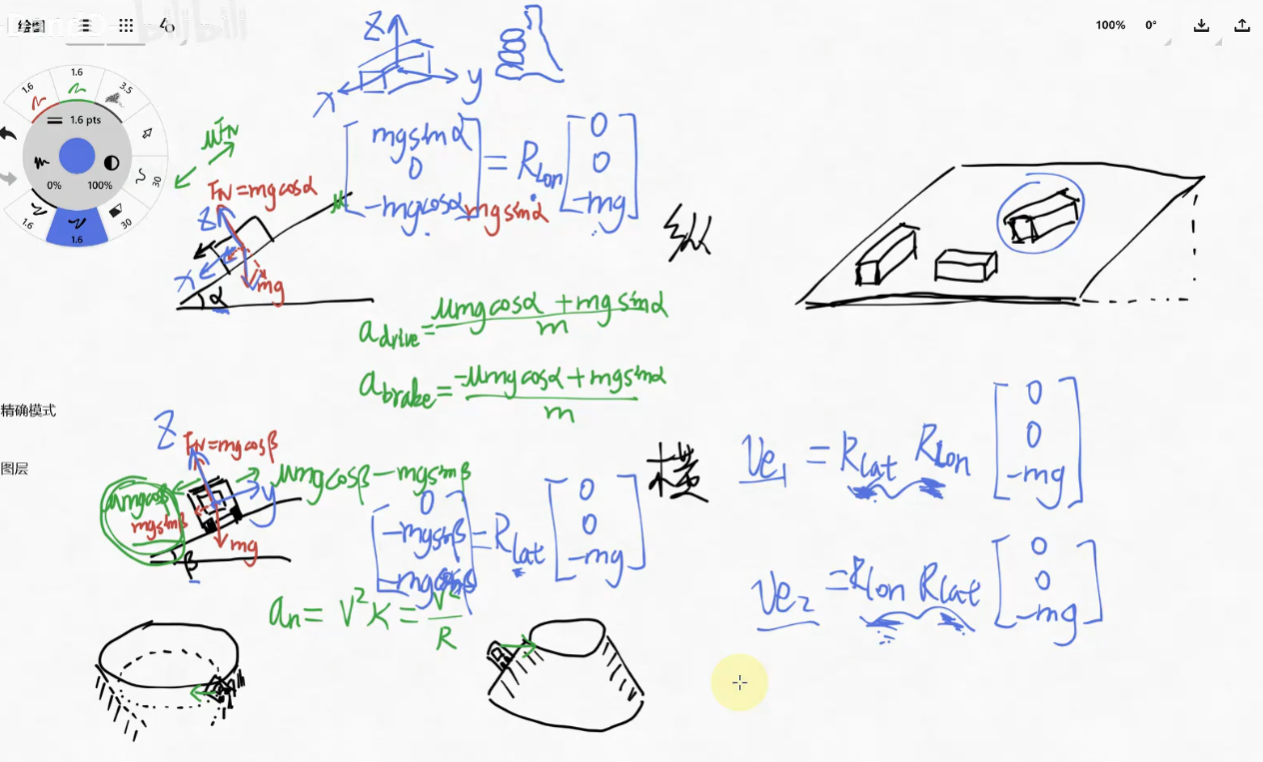 绘图
100%
0°
1.6
1.6
3.5
1.6 pts
30
0%
100%
1.6
30
1.6
精确模式
图层
Z
x
y
μFN
FN = mgcosα
Z
x
mgsinα
mg
α
[mgsinα 0 -mgcosα] = Rlon [0 0 -mg]
纵
adrive = μmgcosα + mgsinα / m
abrake = -μmgcosα + mgsinα / m
Z
FN = mgcosβ
μmgcosβ - mgsinβ
μmgcosβ
mgsinβ
y
mg
β
[0 -mgsinβ -mgcosβ] = Rlat [0 0 -mg]
横
an = V²K = V² / R
ve1 = Rlat Rlon [0 0 -mg]
ve2 = Rlon Rlat [0 0 -mg]